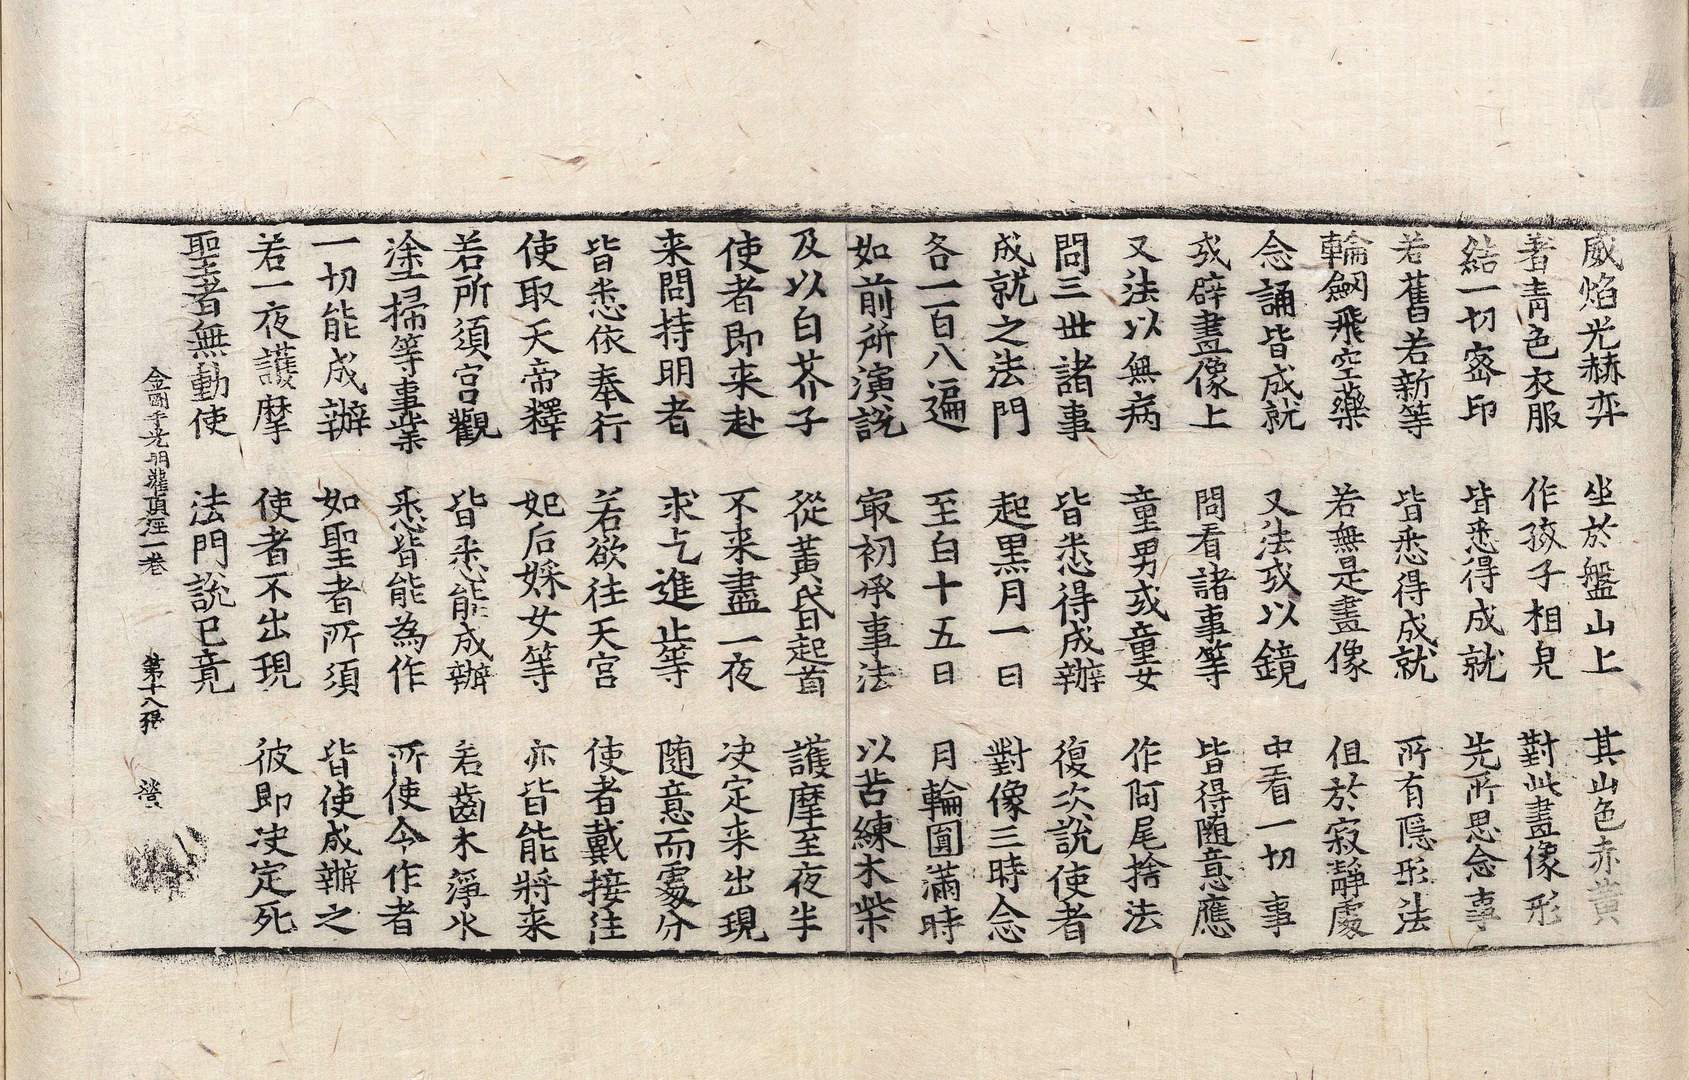 威焰光赫弈　坐於盤山上　其山色赤黃
著青色衣服　作孩子相皃　對此畫像形
結一切密印　皆悉得成就　先所思念事
若舊若新等　皆悉得成就　所有隱形法
輪劒飛空藥　若無是畫像　但於寂靜處
念誦皆成就　又法或以鏡　中看一切事
或辟畫像上　問看諸事等　皆得随意應
又法以無病　童男或童女　作阿尾捨法
問三世諸事　皆悉得成辦　復次說使者
成就之法門　起黑月一日　對像三時念
各一百八遍　至白十五日　月輪圓滿時
如前所演說　㝡初承事法　以苦練木柴
及以白芥子　從黃昏起首　護摩至夜半
使者即来赴　不来盡一夜　决定来出現
来問持明者　求乞進止等　随意而處分
皆悉依奉行　若欲往天宮　使者戴接往
使取天帝釋　妃后婇女等　亦皆能將来
若所須宮觀　皆悉能成辦　若齒木淨水
塗掃等事業　悉皆能為作　所使令作者
一切能成辦　如聖者所須　皆使成辦之
若一夜護摩　使者不出現　彼即决定死
聖者無動使　法門說已竟
金剛手光明灌頂經一卷　第十八張　營